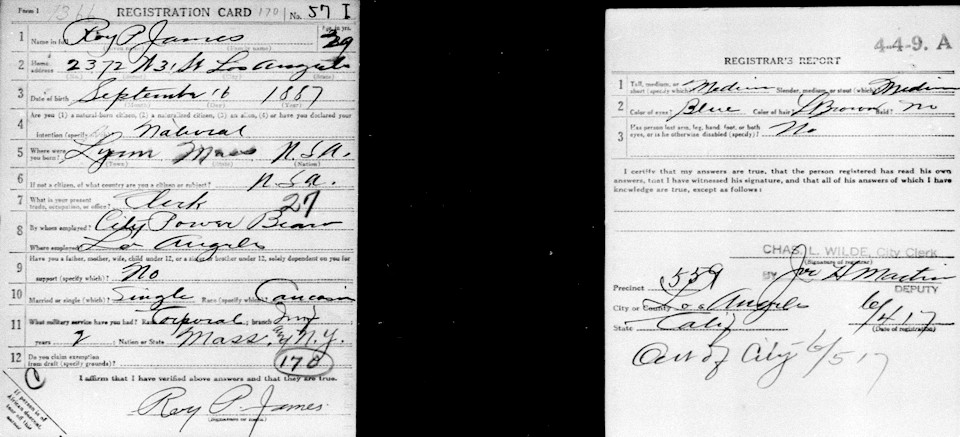 Form 1 1366 REGISTRATION CARD 170 No. 57 I
1 Name in full Roy P. James Age, in yrs. 29
(Given name) (Family name)
2 Home address 2372 W 31 St Los Angeles
(No.) (Street) (City) (State)
3 Date of birth September 16 1887
(Month) (Day) (Year)
4 Are you (1) a natural-born citizen, (2) a naturalized citizen, (3) an alien, (4) or have you declared your
intention (specify which)? Natural
5 Where were you born? Lynn Mass U.S.A.
(Town) (State) (Nation)
6 If not a citizen, of what country are you a citizen or subject? U.S.A.
7 What is your present trade, occupation, or office? Clerk 27
8 By whom employed? City Power
Where employed? Los Angeles
9 Have you a father, mother, wife, child under 12, or a sister or brother under 12, solely dependent on you for
support (specify which)? No
10 Married or single (which)? Single Race (specify which)? Caucasian
11 What military service have you had? Rank Corporal ; branch Inf
years 2 ; Nation or State Mass. & N.Y.
12 Do you claim exemption from draft (specify grounds)? 170
I affirm that I have verified above answers and that they are true.
Roy P. James
(Signature or mark)
If person is of
African descent,
tear off this
corner
449. A
REGISTRAR'S REPORT
1 Tall, medium, or short (specify which)? Medium Slender, medium, or stout (which)? Medium
2 Color of eyes? Blue Color of hair? L Brown Bald? No
3 Has person lost arm, leg, hand, foot, or both eyes, or is he otherwise disabled (specify)? No
I certify that my answers are true, that the person registered has read his own
answers, that I have witnessed his signature, and that all of his answers of which I have
knowledge are true, except as follows:
CHAS. L. WILDE, City Clerk
(Signature of registrar)
BY Joe H Martin
DEPUTY
Precinct 559
City or County Los Angeles 6/4 17
State Calif (Date of registration)
Out of City 6/5 17